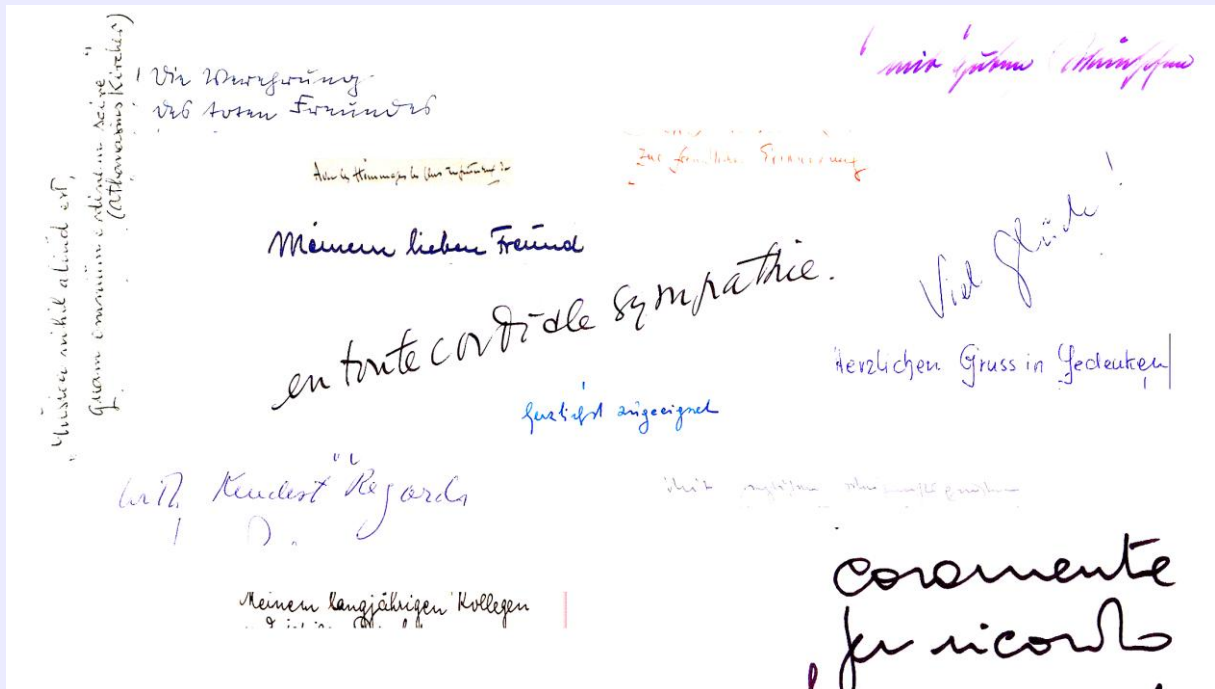 "Musicen nihil aliud est,
quam omnium ordinem scire"
(Athanasius Kircher)
Die Verehrung
des toten Freundes
mit guten Wünschen
Avec les Hommages les plus
Zur freundlichen Erinnerung
Meinem lieben Freund
en toute cordiale sympathie.
Viel Glück!
Herzlichen Gruss in Gedenken
herzlichst zugeeignet
with Kindest Regards
Meinem langjährigen Kollegen
caramente
per ricordo